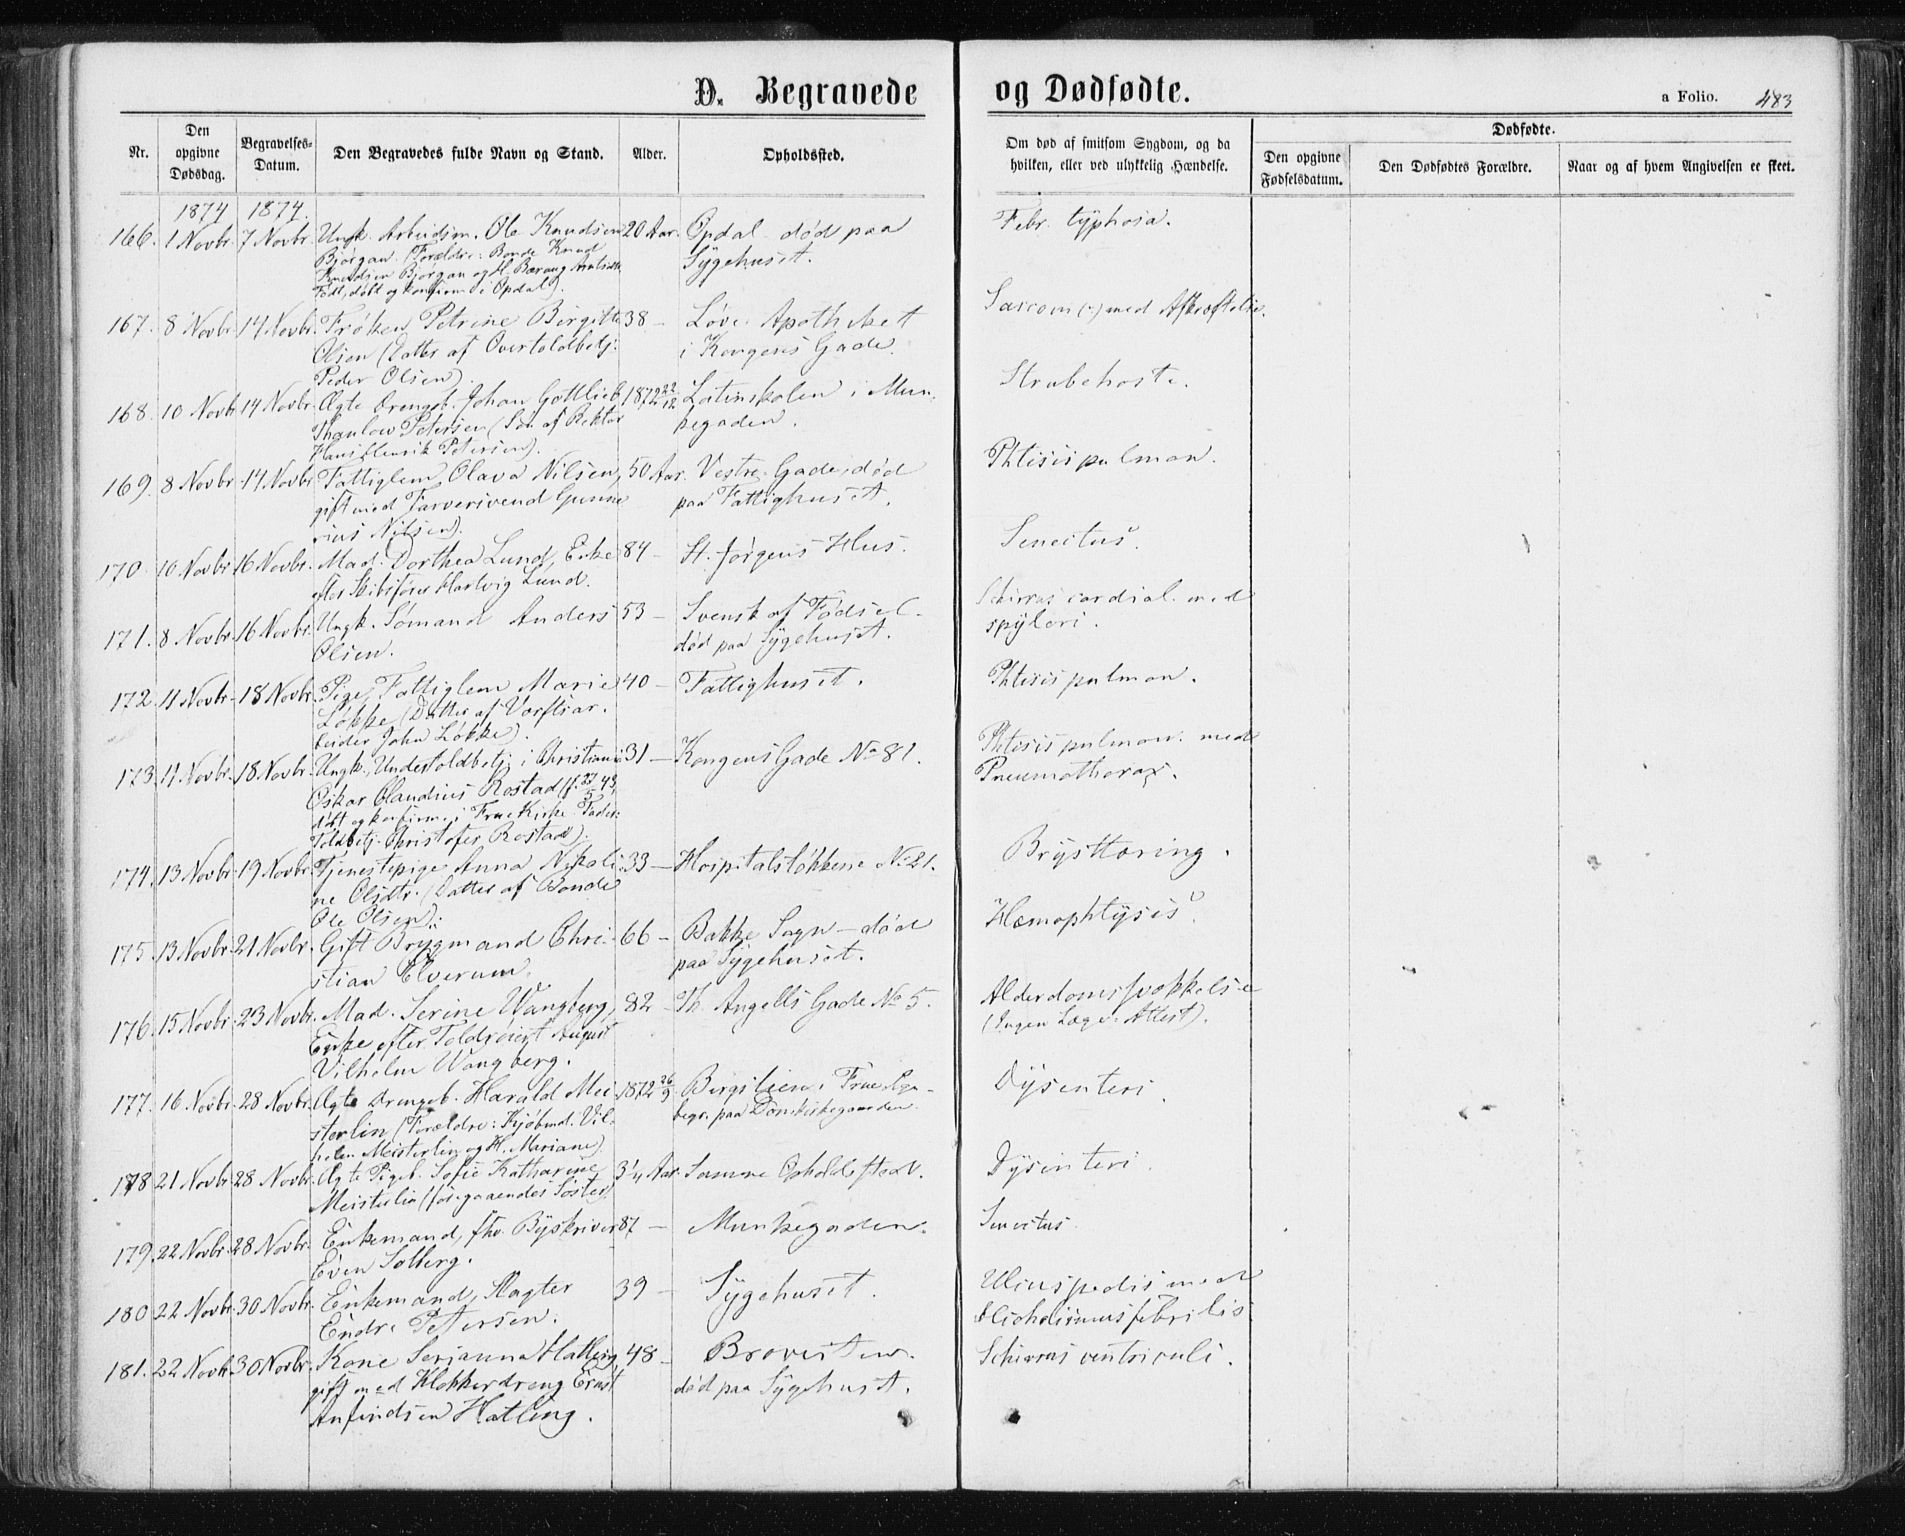 D. Begravede og Dødfødte.
a Folio. 483
Nr.
Den opgivne Dødsdag.
Begravelses-Datum.
Den Begravedes fulde Navn og Stand.
Alder.
Opholdssted.
Om død af smitsom Sygdom, og da hvilken, eller ved ulykkelig Hændelse.
Dødfødte.
Den opgivne Fødselsdatum.
Den Dødfødtes Forældre.
Naar og af hvem Angivelsen er skeet.
1874 1874.
166. 1 Novbr. 7 Novbr. Ungk. Arbeidsm. Ole Knudsen 20 Aar. Opdal - død paa Febr. typhosa.
Bjørgan. (Forældre: Bonde Knud Sygehuset.
Knudsen Bjørgan og H.
Født, døbt og konfirm. i Opdal).
167. 8 Novbr. 14 Novbr. Frøken Petrine Birgitte 38 - Løve-Apotheket Sarcom (-) med Afkræftelse.
Olsen (Datter af Overtoldbetj. i Kongens Gade.
Peder Olsen).
168. 10 Novbr. 14 Novbr. Ægte Drengeb. Johan Gottlieb 1872 22/12 Latinskolen i Mun- Strubehoste.
Thaulow Petersen (Søn af Rektor kegaden.
Hans Henrik Petersen).
169. 8 Novbr. 14 Novbr. Fattiglem Olava Nilsen, 50 Aar. Vestre Gade, død Phtisis pulmon.
gift med Farversvend Gunne paa Fattighuset.
rius Nilsen).
170. 10 Novbr. 16 Novbr. Mad. Dorthea Lund, Enke 84 - St. Jørgens Hus. Senectus.
efter Skibsfører Hartvig Lund.
171. 8 Novbr. 16 Novbr. Ungk. Sømand Anders 53 - Svensk af Fødsel - Schirras cardial. med
Olsen. død paa Sygehuset. spylori.
172. 11 Novbr. 18 Novbr. Pige, Fattiglem Marie 40 - Fattighuset. Phtisis pulmon.
Løkke (Datter af Værftsar-
beider John Løkke).
173. 11 Novbr. 18 Novbr. Ungk. Undertoldbetj. i Christiania 31 - Kongens Gade No 81. Phtisis pulmon. med
Oskar Claudius Rostad (f. 27/5 43, Pneumothorax.
døbt og konfirm. i Frue Kirke Fader:
Toldbetj. Christofer Rostad).
174. 13 Novbr. 19 Novbr. Tjenestepige Anna Nikoli- 33 - Hospitalsløkkene No 21. Brysttæring.
ne Olsdtr. (Datter af Bonde
Ole Olsen).
175. 13 Novbr. 21 Novbr. Gift Brygmand Chri- 66 - Bakke Sogn - død Hæmophtysis.
stian Elverum. paa Sygehuset.
176. 15 Novbr. 23 Novbr. Mad. Serine Wangberg, 82 - Th. Angells Gade No 5. Alderdomssvækkelse
Enke efter Toldrøiert August (Ingen Læge-Attest).
Vilhelm Wangberg.
177. 16 Novbr. 28 Novbr. Ægte Drengeb. Harald Mei- 1872 26/9 Bergslien i Frue Sogn- Dysenteri.
sterlin (Forældre: Kjøbmd. Vil- begr. paa Domkirkegaarden.
helm Meisterlin og H. Mariane).
178. 21 Novbr. 28 Novbr. Ægte Pigeb. Sofie Katharine 3 1/4 Aar. Samme Opholdssted. Dysenteri.
Meisterlin (foregaaendes Søster).
179. 22 Novbr. 28 Novbr. Enkemand, fhv. Byskriver 87 - Munkegaden. Senectus.
Even Solberg.
180. 22 Novbr. 30 Novbr. Enkemand, Slagter 39 - Sygehuset. Ulcus pedis med
Endre Petersen. Alcholismus febrilis
181. 22 Novbr. 30 Novbr. Kone Serianna Hatling, 48 - Brovesten. Schirras ventriculi.
gift med Klokkerdreng Ernst død paa Sygehuset.
Anfindsen Hatling.